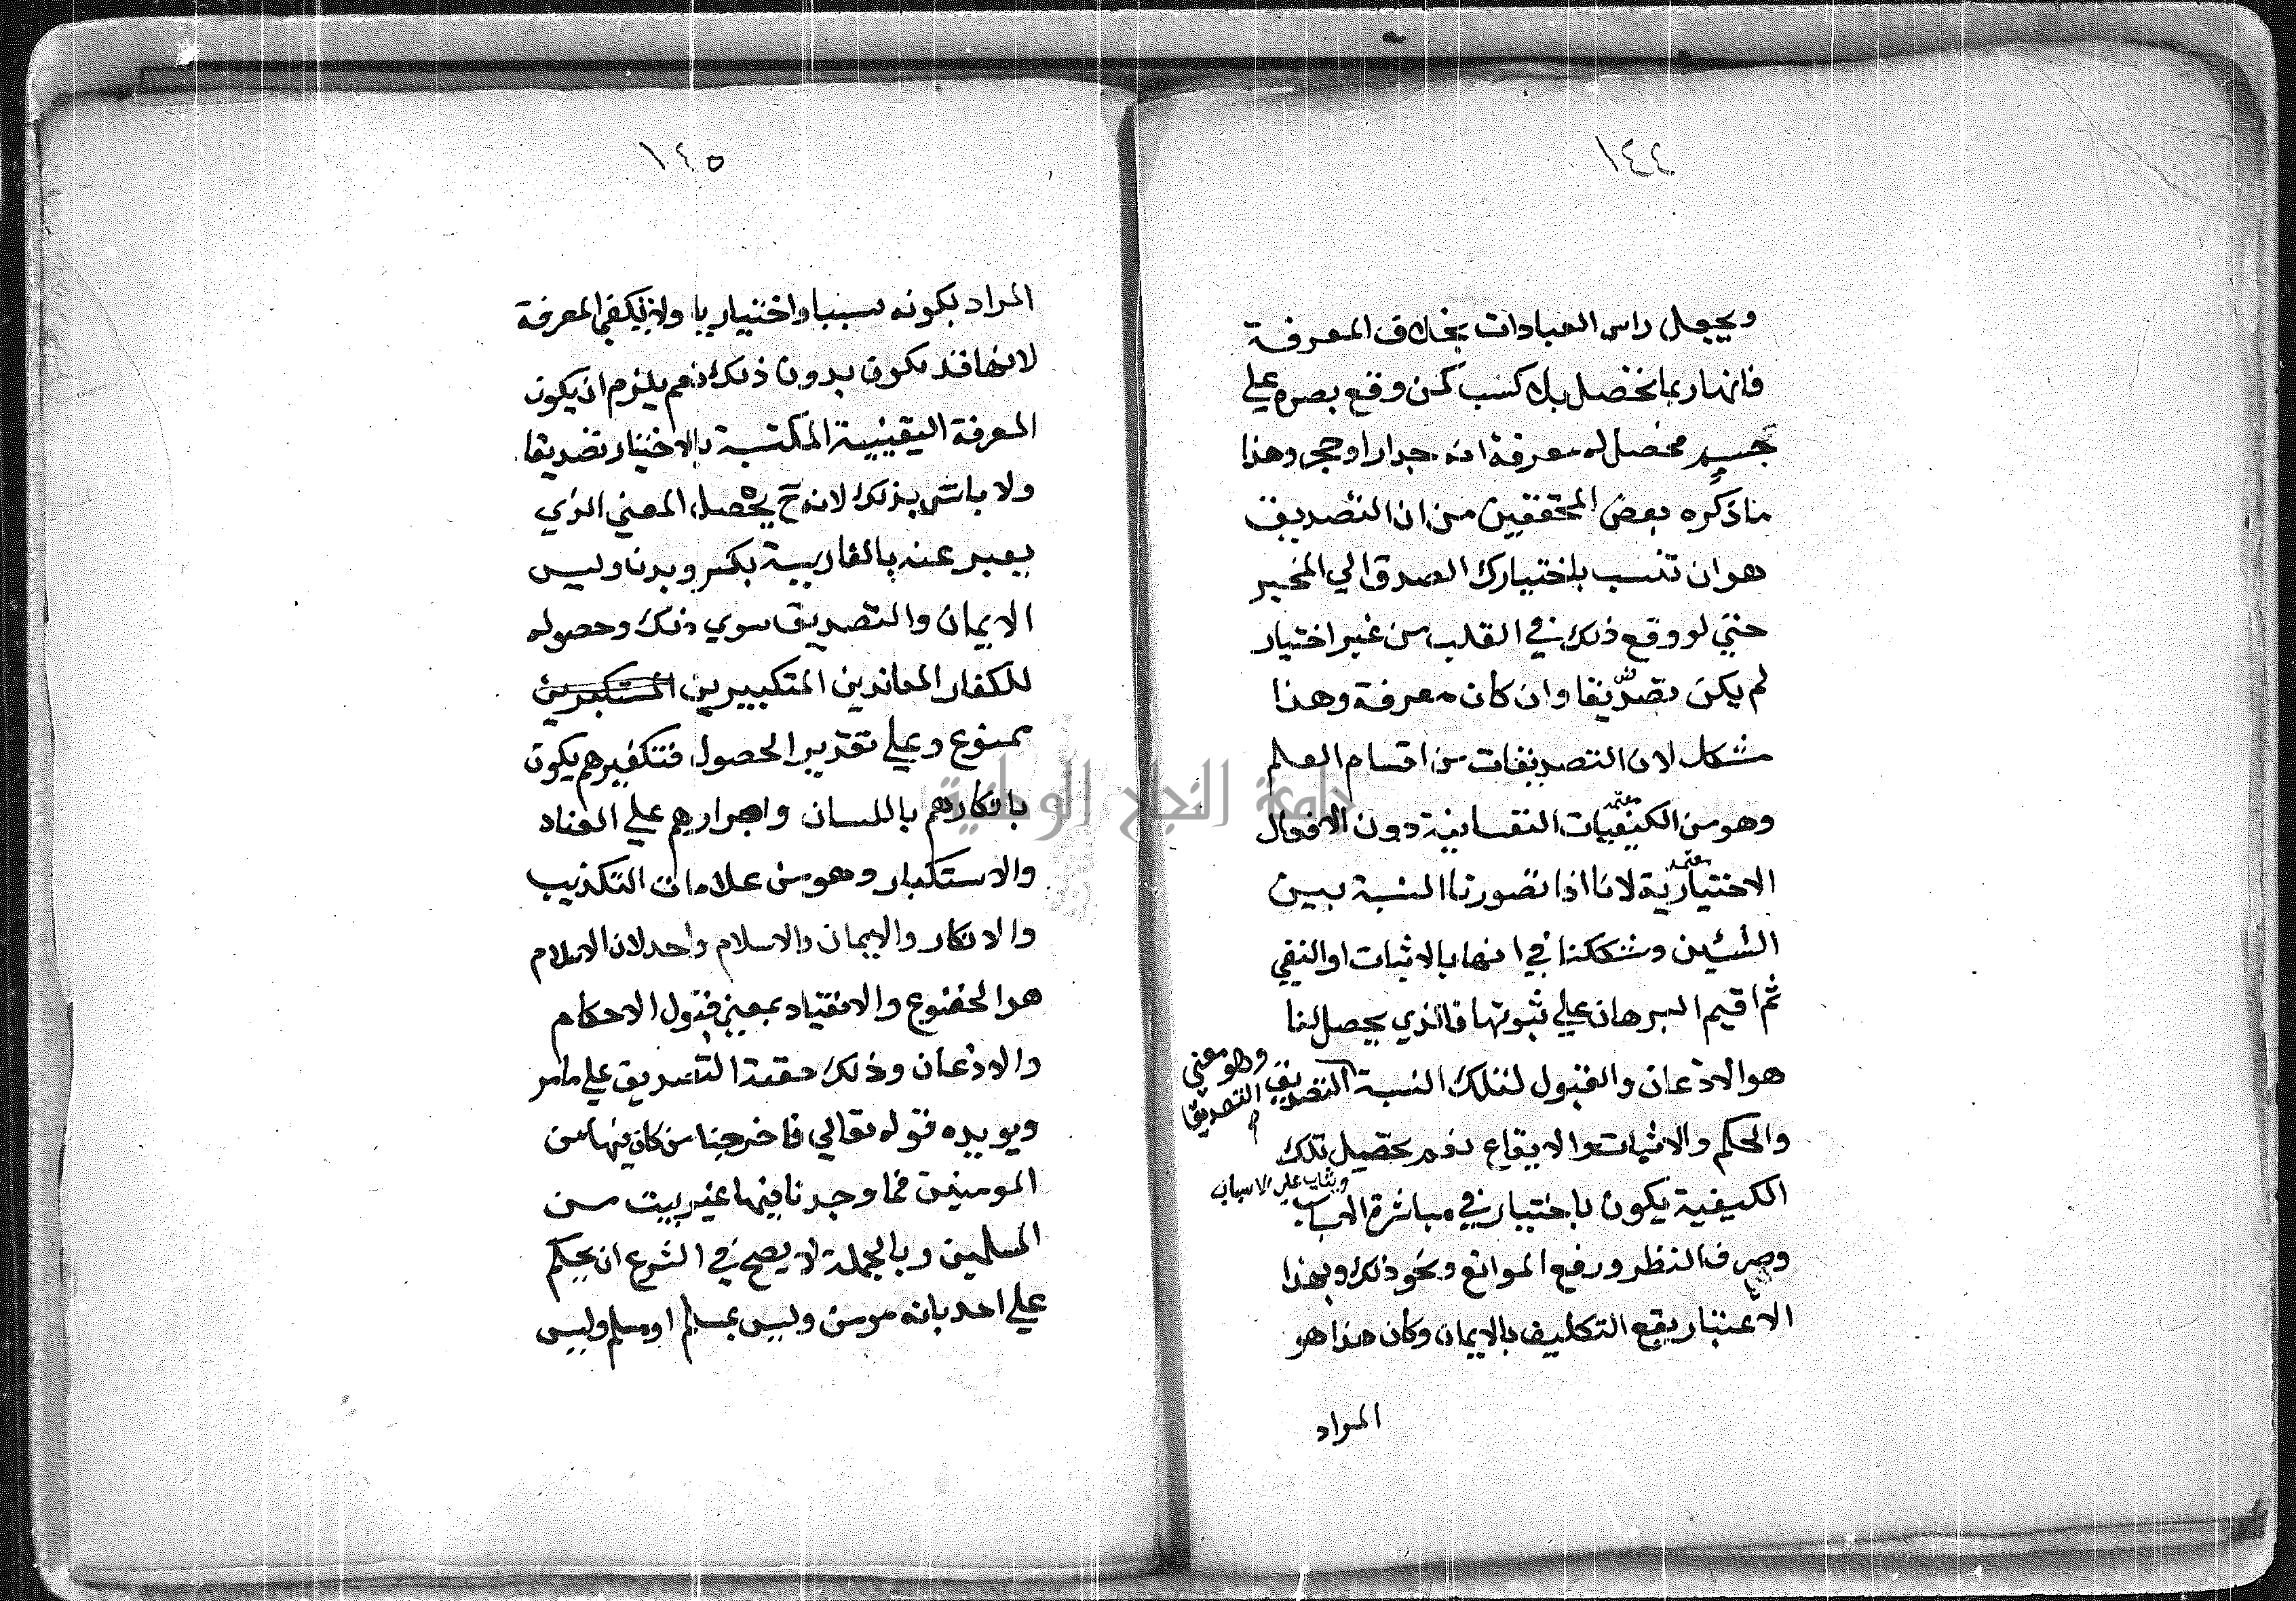 ١٤٤
ويجعل راس العبادات بخلاف المعرفة
فانها ربما تحصل بلا كسب كمن وقع بصره علي
جسم فحصل له معرفة انه جدار او حجر وهذا
ما ذكره بعض المحققين من ان التصديق
هو ان تنسب باختيارك الصدق الي المخبر
حتي لو وقع ذلك في القلب من غير اختيار
لم يكن تصديقا وان كان معرفة وهذا
مشكل لان التصديقات من اقسام العلم
وهو من الكيفيات النفسانية دون الافعال
معتمد
الاختيارية لانا اذا تصورنا النسبة بين
معتمد
الشيئين وشككنا في انها بالاثبات او النفي
ثم اقيم البرهان علي ثبوتها فالذي يحصل لنا
هو الاذعان والقبول لتلك النسبة التصديق
وهو معني
التصديق
والحكم والاثبات والايقاع نعم تحصيل تلك
الكيفية يكون باختيار في مباشرة الاسباب
ويثاب علي الاسباب
وصرف النظر ورفع الموانع ونحو ذلك وبهذا
الاعتبار يقع التكليف بالايمان وكان هذا هو
المراد
١٤٥
المراد بكونه سببا واختياريا ولا يكفي المعرفة
لانها قد تكون بدون ذلك نعم يلزم ان يكون
المعرفة اليقينية المكتسبة بالاختيار تصديقا
ولا باس بذلك لانه ح يحصل المعني الذي
يعبر عنه بالفارسية بكرويدن وليس
الايمان والتصديق سوي ذلك وحصوله
للكفار المعاندين المتكبيرين المستكبرين
ممنوع وعلي تقدير الحصول فتكفيرهم يكون
بانكارهم باللسان واصرارهم علي العناد
والاستكبار وهو من علامات التكذيب
والانكار والايمان والاسلام واحد لان الاسلام
هو الخضوع والانقياد بمعني قبول الاحكام
والاذعان وذلك حقيقة التصديق علي ما مر
ويويده قوله تعالي فاخرجنا من كان فيها من
المومنين فما وجدنا فيها غير بيت من
المسلمين وبالجملة لا يصح في الشرع ان يحكم
علي احد بانه مومن وليس بمسلم او مسلم وليس
جامعة النجاح الوطنية